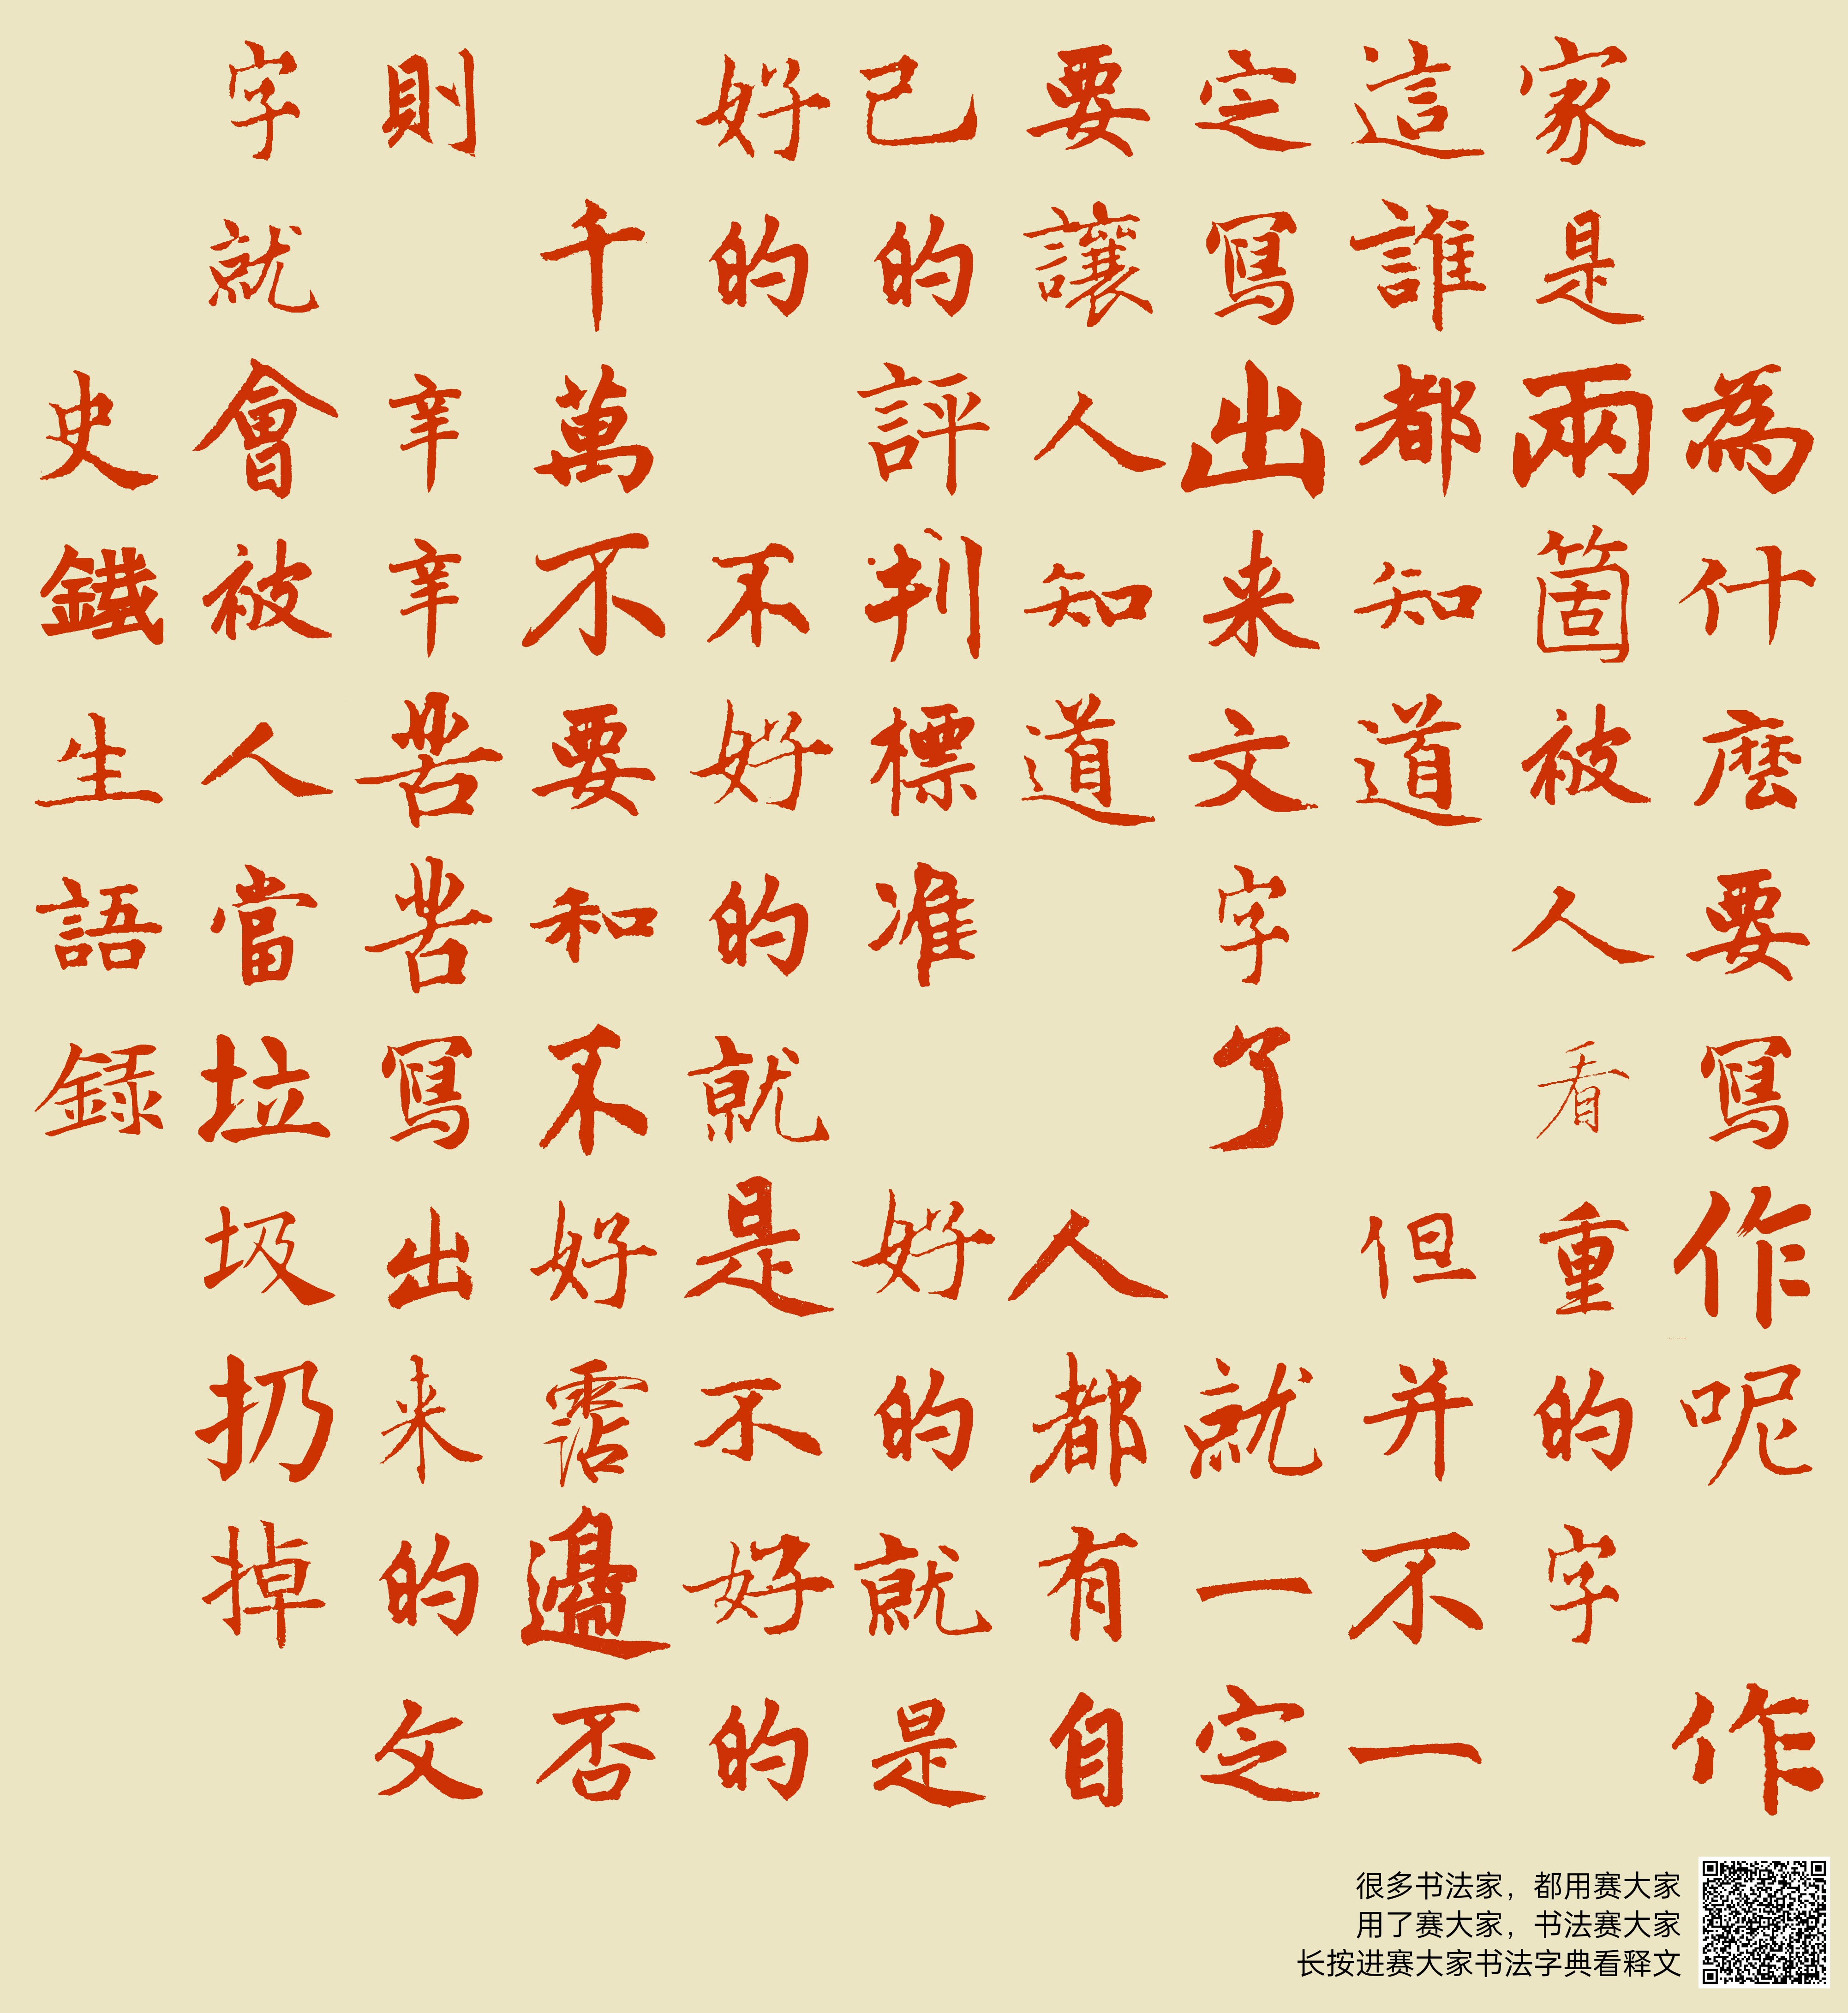 為什麼要寫作呢 作
家是兩箇被人看重的字
這誰都知道 但并不一
定寫出来文字了 就一定
要讓人知道 人都有自
己的評判標准 好的就是
好的 不好的就是不好的
千萬不要和不好霑邊否
則 辛辛苦苦寫出来的文
字就會被人當垃圾扔掉
史鐵生語録
很多书法家，都用赛大家
用了赛大家，书法赛大家
长按进赛大家书法字典看释文